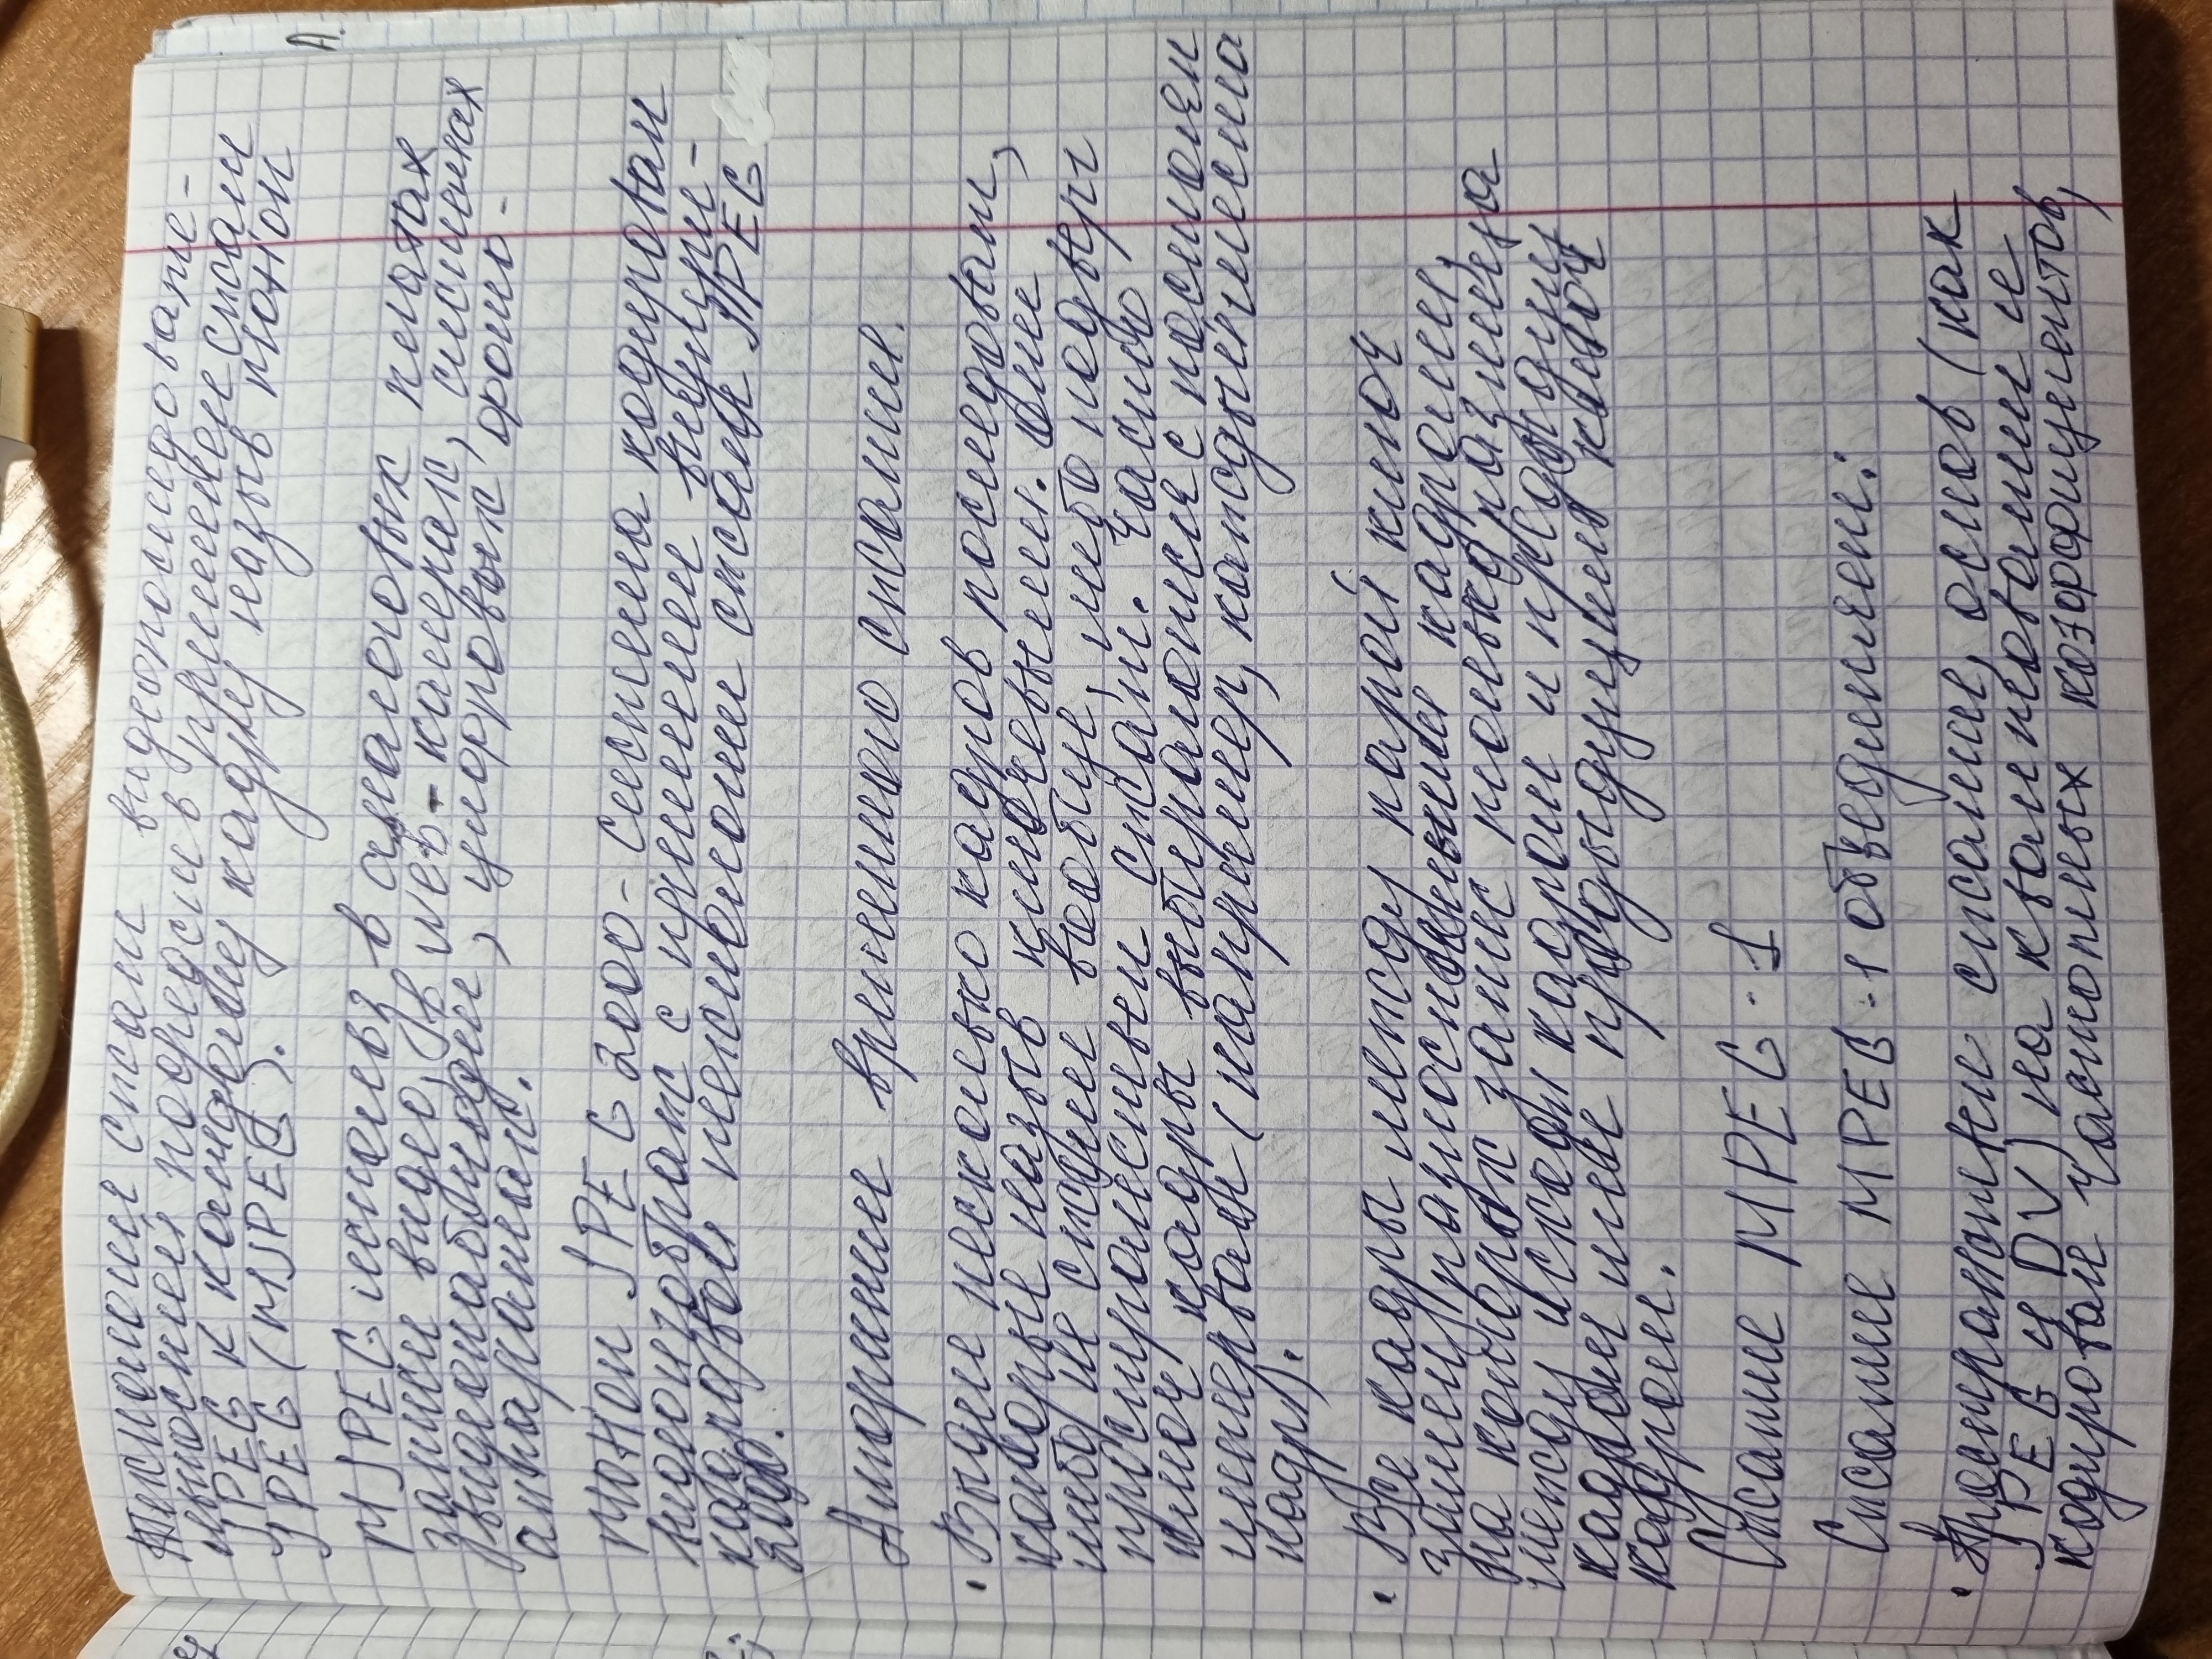 Технология сжат видеопоследовате-
льностей посредств применен сжат
JPEG к каждому кадру назыв мойон
JPEG (MJPEG).
MJPEG использ в аналоговых платах
записи видео, в web-камерах, системах
видеонаблюден, цифровых фото-
аппаратах.
Мойон JPEG 2000 - система кодирован
видеоизображ с применен внутри-
кадровой технологии сжатия JPEG
2000.
Алгоритми временного сжатия.
• Выдел несколько кадров последоват,
которые назыв ключевыми. они
либо не сжаты вообще, либо подверг
пространствен сжат. Часто
ключ кадры выбираются с постоян
интервал (например, каждый шеста
кадр).
• Все кадры между парой ключ
замен разностными кадрами,
на которых запис только разница
между исходн кадром и предыдущ
кадром или предыдущим ключ
кадром.
Сжатие MPEG-1
Сжатие MPEG-1 объединяет:
• Пространствен сжатие, основ (как
JPEG и DV) на квантовании и
кодирован частотных коэффициентов,
А.